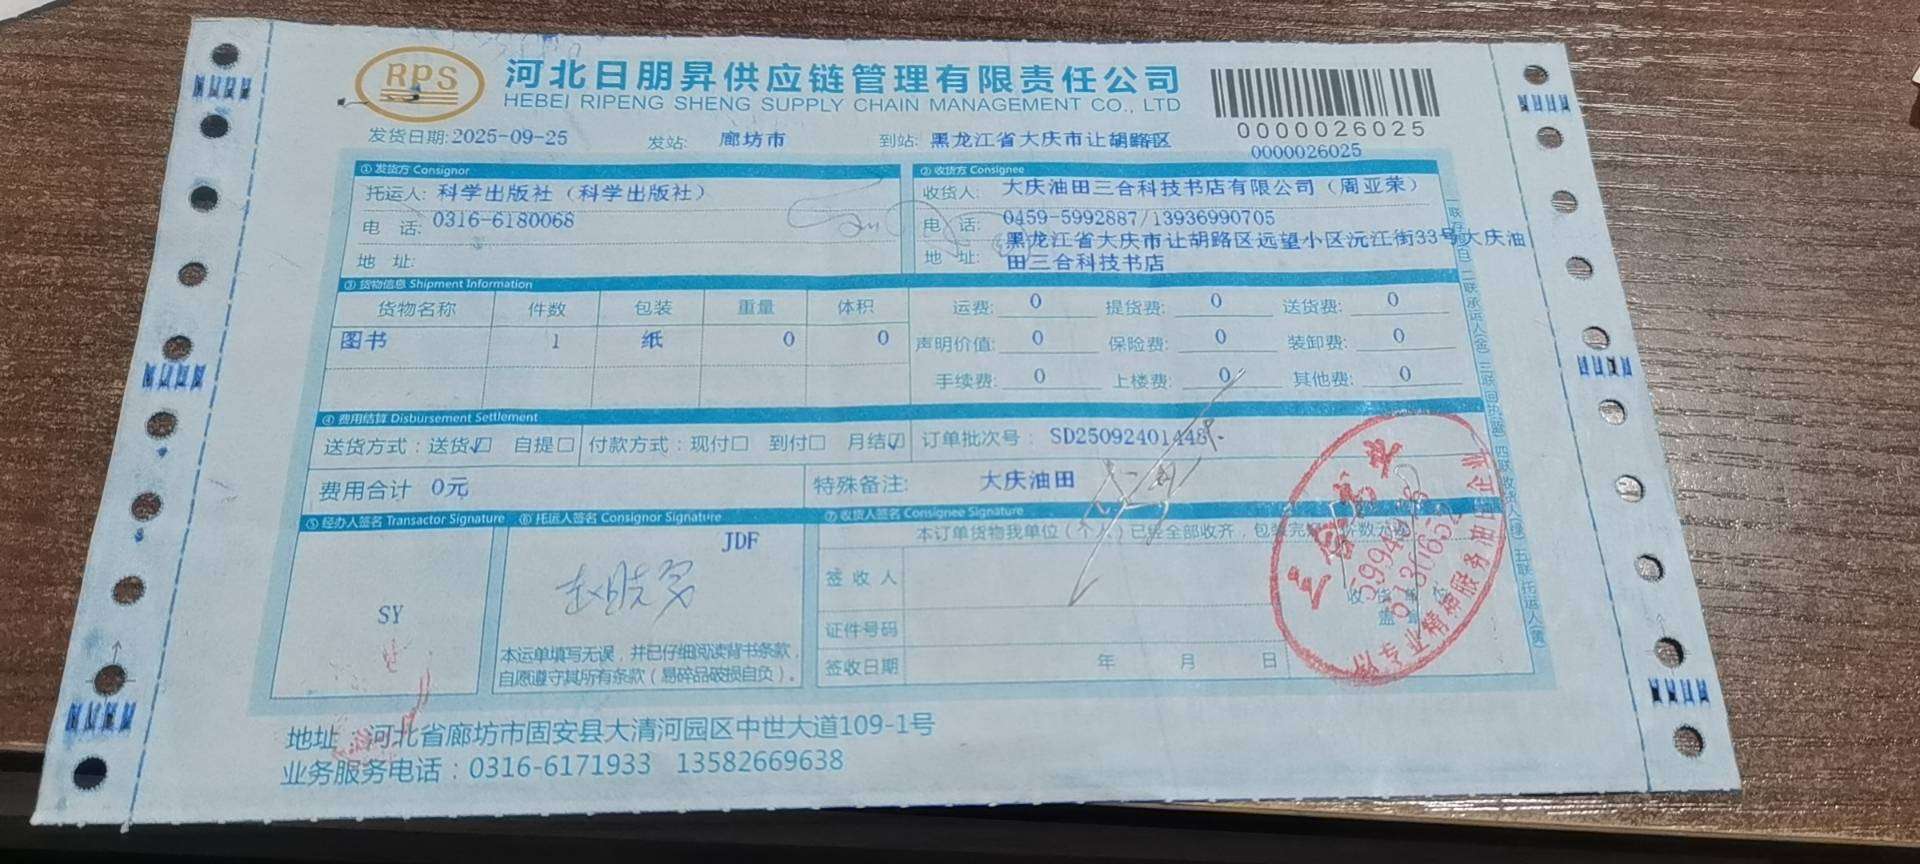 RPS
河北日朋昇供应链管理有限责任公司
HEBEI RIPENG SHENG SUPPLY CHAIN MANAGEMENT CO., LTD
0000026025
0000026025
发货日期:2025-09-25 发站: 廊坊市 到站: 黑龙江省大庆市让胡路区
① 发货方 Consignor
托运人: 科学出版社（科学出版社）
电 话: 0316-6180068
地 址:
② 收货方 Consignee
收货人: 大庆油田三合科技书店有限公司（周亚荣）
电 话: 0459-5992887/13936990705
地 址: 黑龙江省大庆市让胡路区远望小区沅江街33号大庆油
田三合科技书店
③ 货物信息 Shipment Information
货物名称 件数 包装 重量 体积
图书 1 纸 0 0
运费: 0 提货费: 0 送货费: 0
声明价值: 0 保险费: 0 装卸费: 0
手续费: 0 上楼费: 0 其他费: 0
④ 费用结算 Disbursement Settlement
送货方式：送货☑ 自提□ 付款方式：现付□ 到付□ 月结☑ 订单批次号： SD25092401448
费用合计 0元 特殊备注: 大庆油田
⑤ 经办人签名 Transactor Signature
SY
⑥ 托运人签名 Consignor Signature
JDF
本运单填写无误，并已仔细阅读背书条款，
自愿遵守其所有条款（易碎品破损自负）。
⑦ 收货人签名 Consignee Signature
本订单货物我单位（个人）已经全部收齐，包装完
签 收 人
证件号码
签收日期 年 月 日
以专业精神服务油田企业
地址：河北省廊坊市固安县大清河园区中世大道109-1号
业务服务电话：0316-6171933 13582669638